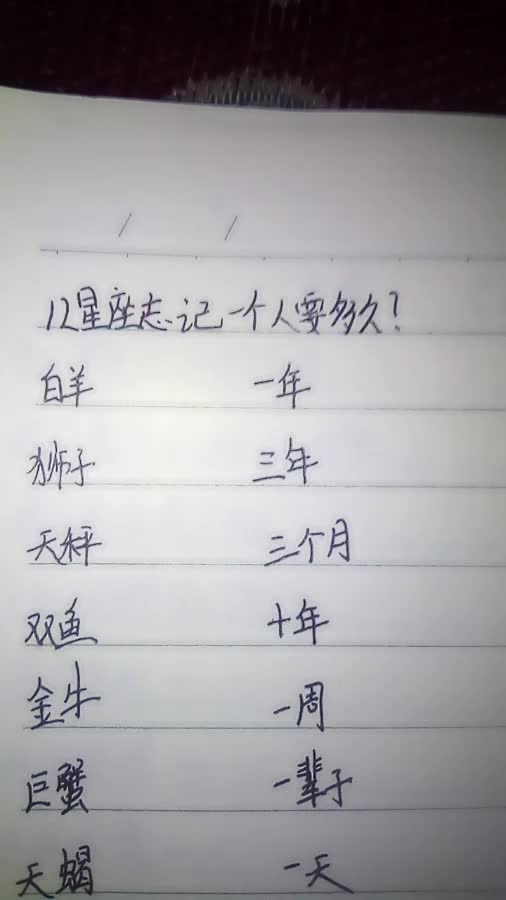 12星座志记一个人要多久?
白羊 一年
狮子 三年
天秤 三个月
双鱼 十年
金牛 一周
巨蟹 一辈子
天蝎 一天